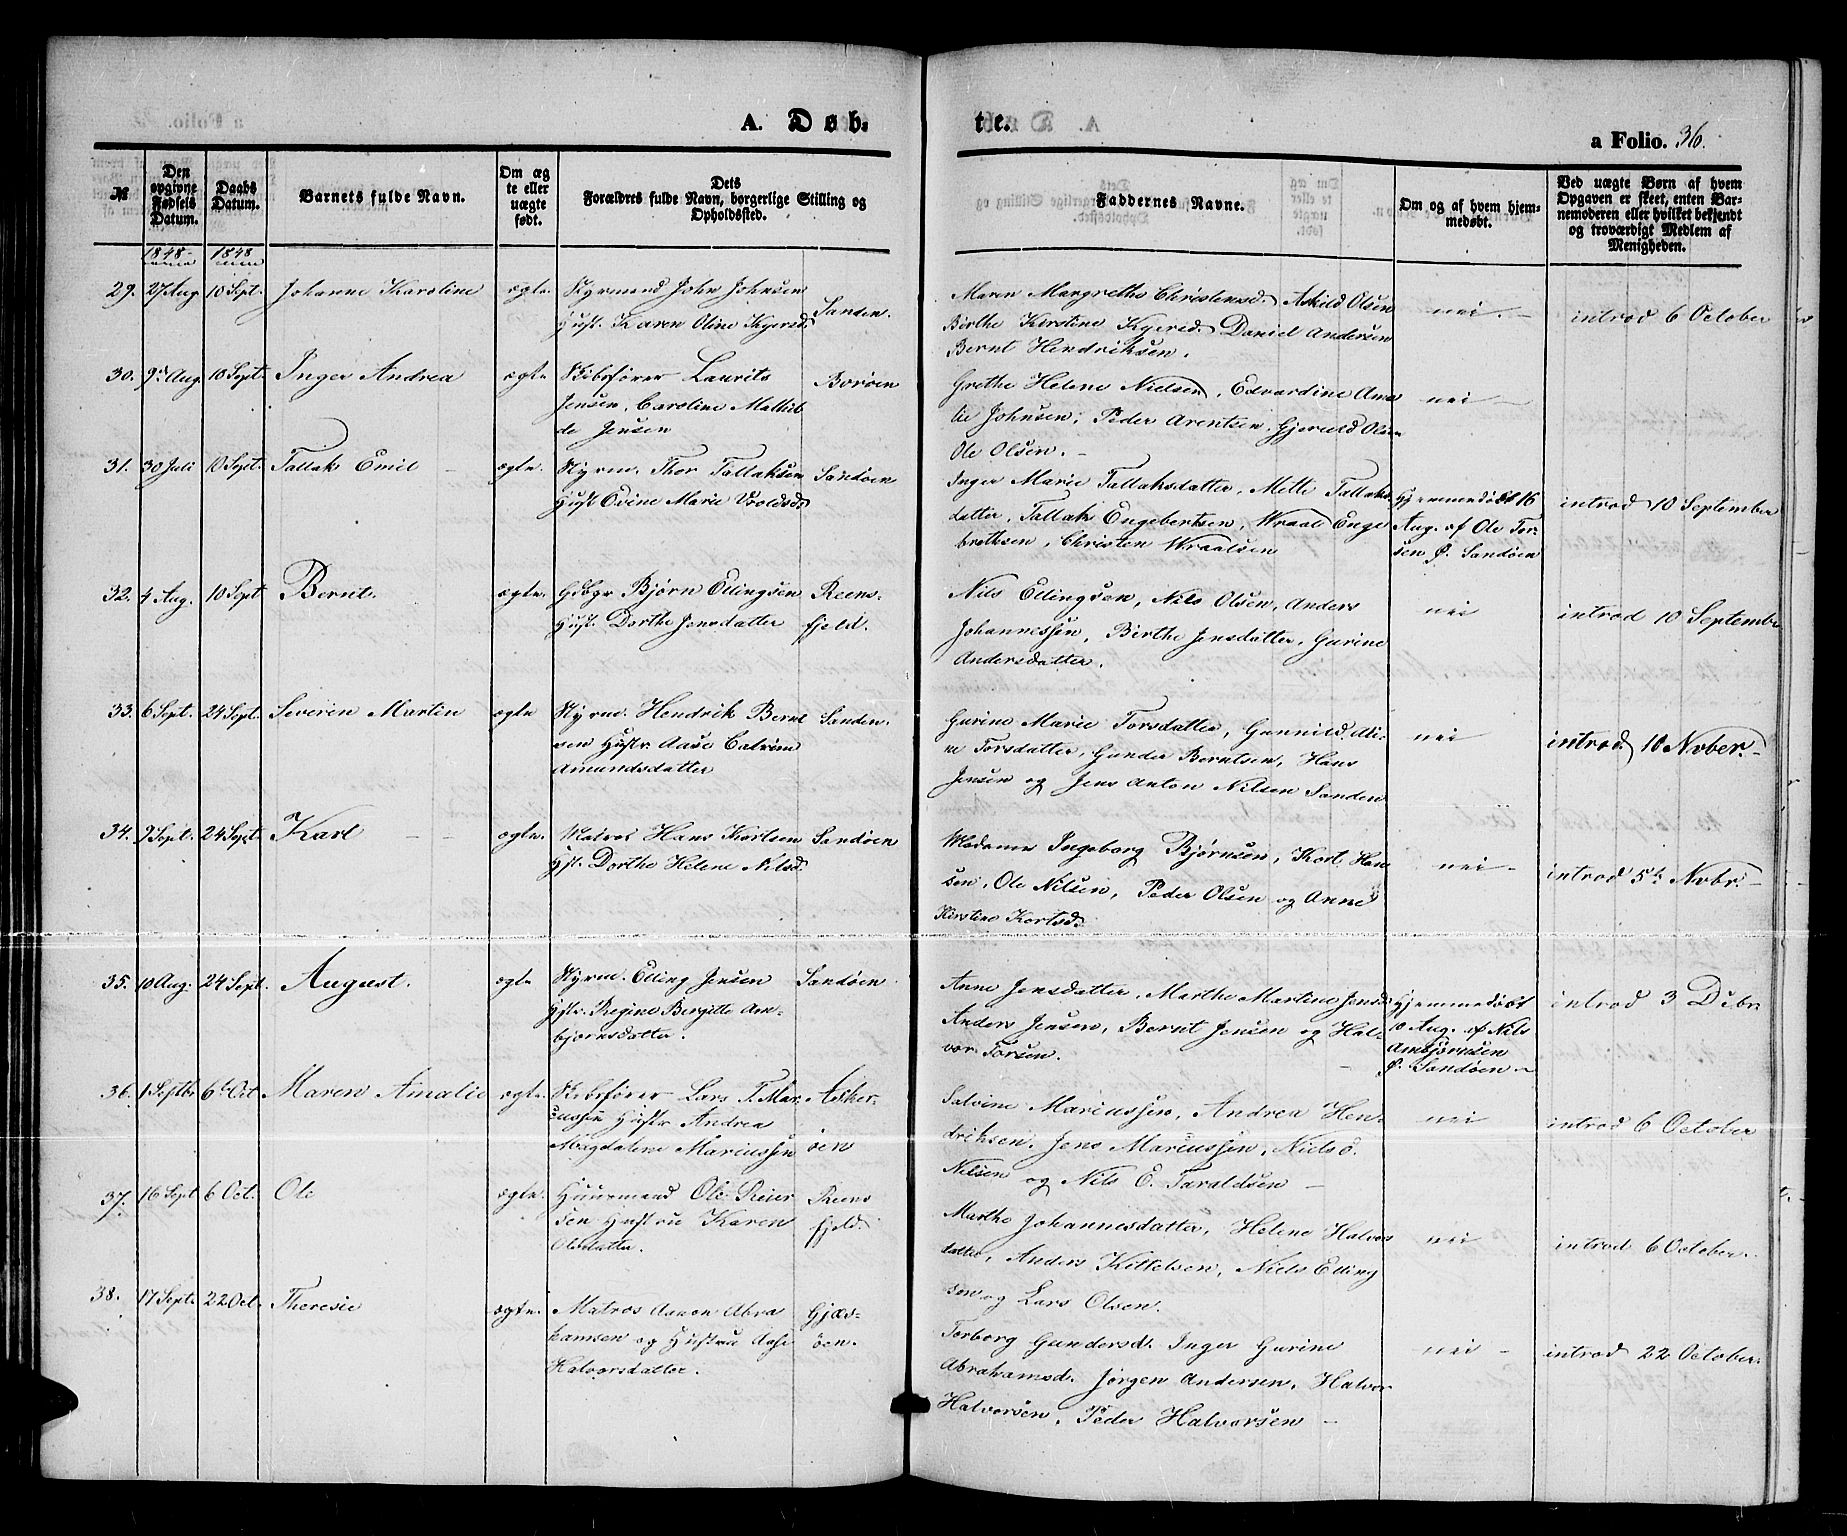 A. Døb=
te.
a Folio. 36.
№
Den opgivne Fødsels Datum.
Daabs Datum.
Barnets fulde Navn.
Om ægte eller uægte født.
Dets Forældres fulde Navn, borgerlige Stilling og Opholdssted.
Faddernes Navne.
Om og af hvem hjemmedøbt.
Ved uægte Børn af hvem Opgaven er skeet, enten Barnemoderen eller hvilket bekjendt og troværdigt Medlem af Menigheden.
1848 1848
29. 27 Aug 10 Sept. Johanne Karoline ægte Styrmand John Johnsen
Hust. Karen Oline Kgersd. Sanden.
Maren Margrethe Christensd. Askild Olsen
Birthe Kirstine Kgersd. Daniel Andersen
Bernt Hendriksen.
nei. introd 6 October
30. 9 Aug 10 Sept. Inger Andrea ægte Skibsfører Laurits
Jensen, Caroline Mathil
de Jensen
Borøen
Grethe Helene Nielsen, Edvardine Ama
lie Johnsen, Peder Arentsen, Gjeruld Olsen
Ole Olsen.
nei
31. 30 Juli 10 Sept. Tallak Emil ægte. Styrm. Thor Tallaksen
Hust Ovine Marie
Sandøen
Inger Marie Tallaksdatter, Mette Tallaks
datter, Tallak Engebertsen, Wraal Enge
brethsen, Christen Wraalsen
Hjemmedøbt 16
Aug. af Ole Tor
sen P. Sandøen
introd 10 September
32. 4 Aug. 10 Sept Bernt. ægte. Gdbgr Bjørn Ellingsen
Hust. Dorthe Jensdatter
Reens-
fjeld.
Nils Ellingsen, Nils Olsen, Anders
Johannessen, Birthe Jensdatter, Gurine
Andersdatter.
nei
introd 10 September
33. 6 Sept. 24 Sept. Severin Martin ægte Styrm. Hendrik Bernt
sen Hustr. Aase Catrine
Amundsdatter
Sanden.
Gurine Marie Torsdatter, Gunnild Ali-
ne Torsdatter, Gunder Berntsen, Hans
Jensen og Jens Anton Nilsen Sanden
nei
introd. 10 Nvber.
34. 9 Sept. 24 Sept. Karl ægte. Matros Hans Karlsen
Hst. Dorthe Helene Nilsd.
Sandøen
Madame Ingeborg Bjørnsen, Karl Han
sen, Ole Nilsen, Peder Olsen og Anne
Kirstine Karlsd.
nei
introd 5te Nvbr.
35. 10 Aug. 24 Sept. August. ægte Styrm. Elling Jensen
Hstr. Regine Birgitte Am-
bjørnsdatter.
Sandøen
Anne Jensdatter, Marthe Martine Jensd.
Anders Jensen, Bernt Jensen og Hal-
vor Torsen.
Hjemmedøbt
10 Aug. af Nils
Ambjørnsen
P. Sandøen
introd 3 Debr
36. 1 Septbr 6te Oct Maren Amalie ægte. Skibsfører Lars T. Mar
cussen Hustr Andrea
Magdalene Mariussen
Asker-
øen
Salvine Mariussen, Andrea Hen-
driksen, Jens Marcussen, Niels O.
Nilsen og Nils E. Taraldsen
nei
introd 6 October
37. 16 Sept 6 Oct. Ole ægte. Huusmand Ole Reier
sen Hustru Karen
Olsdatter.
Reens
fjeld.
Marthe Johannesdatter, Helene Halvors
datter, Anders Kittelsen, Niels Elling
sen og Lars Olsen.
nei
introd 6 October.
38. 17 Sept. 22 Oct. Theresie ægte. Matros Aanon Abra
hamsen og Hustru Aase
Halvorsdatter.
Gjæs-
øen.
Torborg Gundersd. Inger Gurine
Abrahamsd. Jørgen Andersen, Halvor
Halvorsen, Peder Halvorsen
nei
introd 22 October.